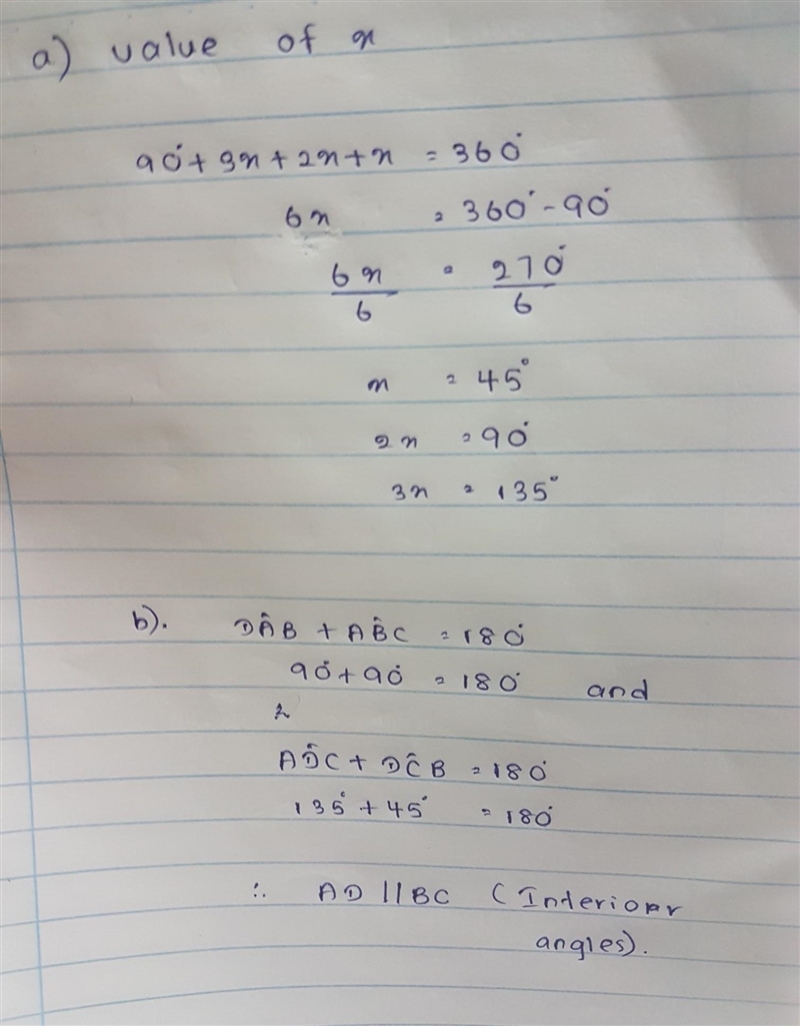 a) value of x
90° + 3x + 2x + x = 360°
6x = 360° - 90°
6x/6 = 270°/6
x = 45°
2x = 90°
3x = 135°
b). DÂB + AB̂C = 180°
90° + 90° = 180° and
AD̂C + DĈB = 180°
135° + 45° = 180°
∴ AD || BC (Interior
angles).